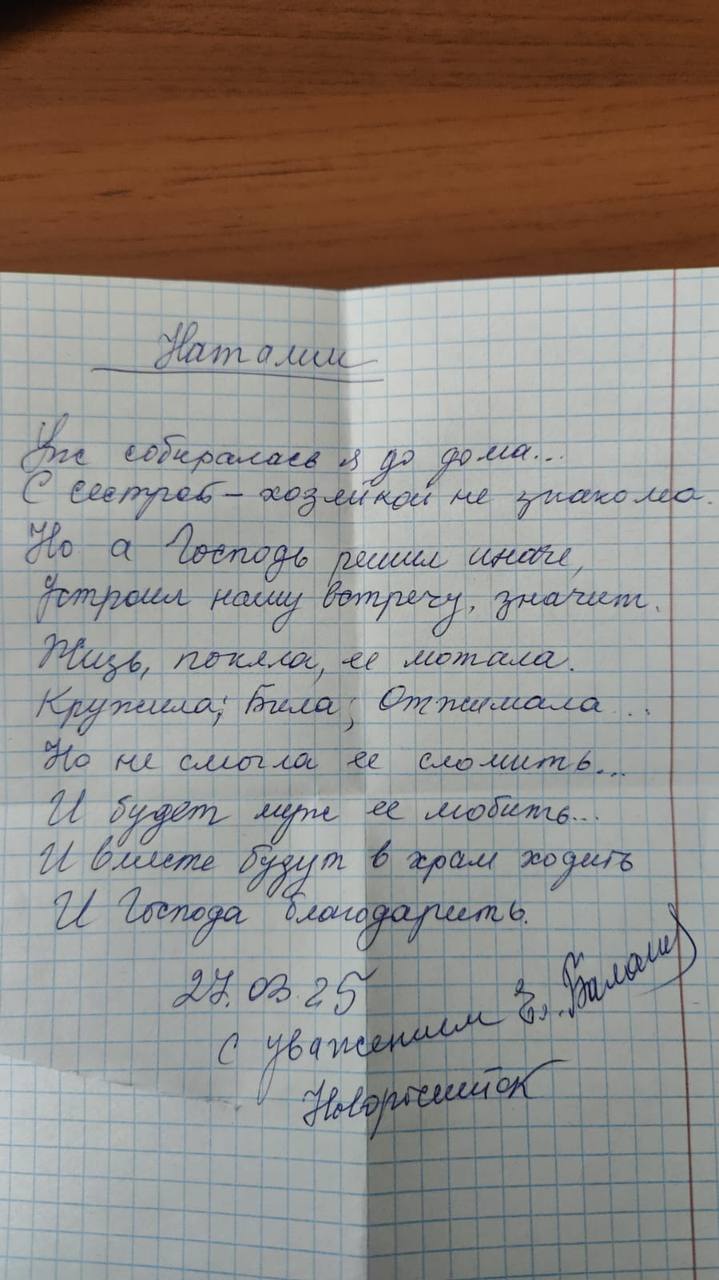 Наталии
Уж собиралась я до дома...
С сестрой – хозяйкой не знакома.
Но а Господь решил иначе,
Устроил нашу встречу, значит.
Жизь, поняла, ее мотала.
Кружила; Била; Отжимала...
Но не смогла ее сломить...
И будет муж ее любить...
И вместе будут в храм ходить
И Господа благодарить.
27.03.25
С уважением Ел.
Новороссийск